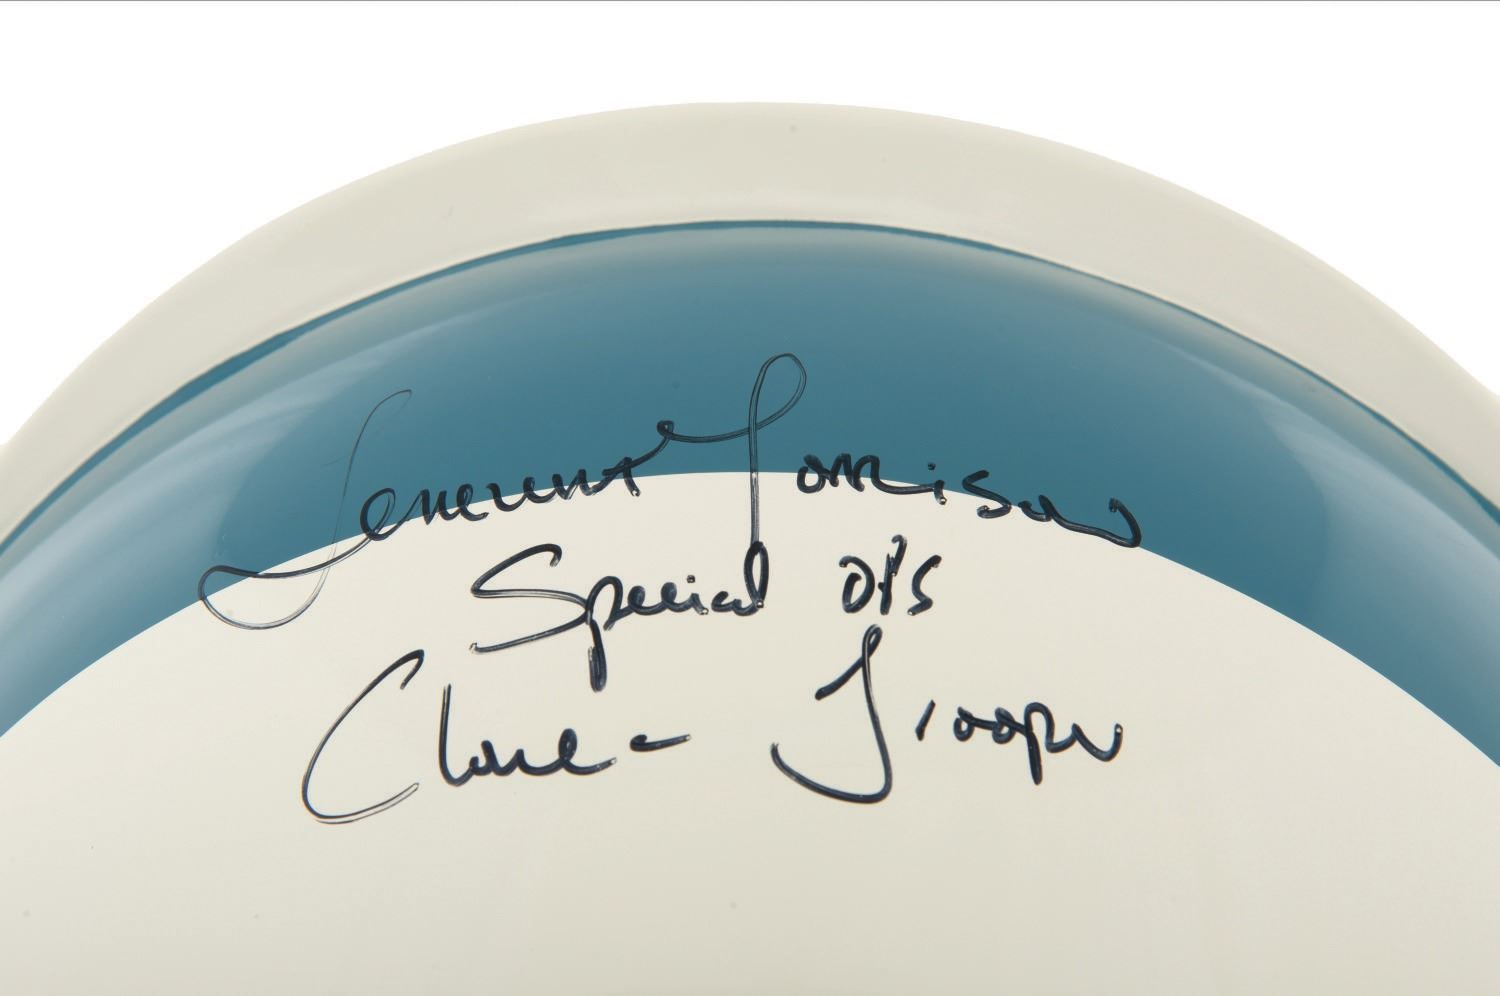 Temuera Morrison
Special OPS
Clone - Trooper